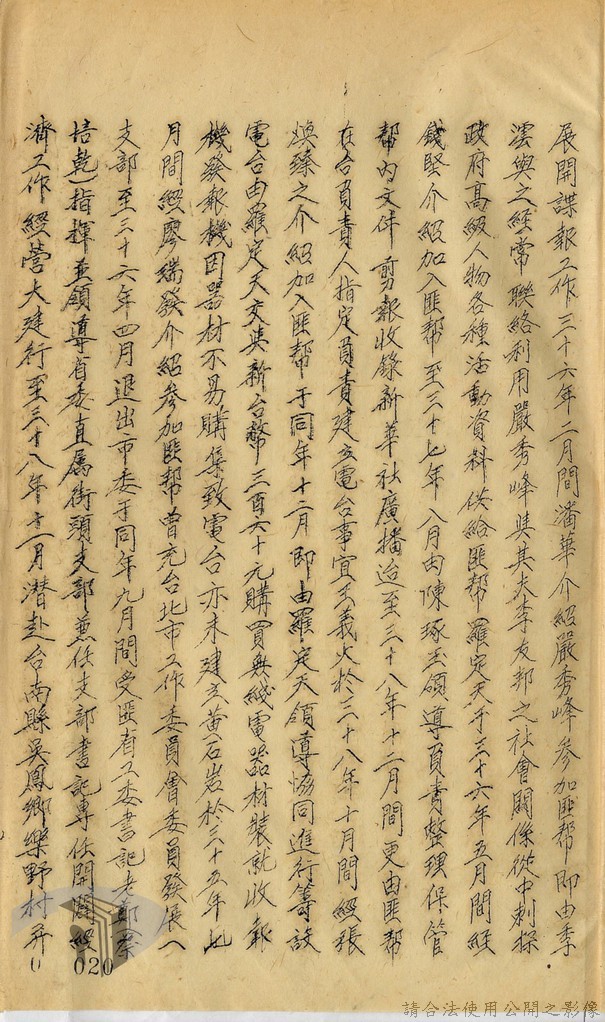 展開諜報工作三十六年二月間潘華介紹嚴秀峰參加匪幫即由季
澐與之經常聯絡利用嚴秀峰與其夫李友邦之社會關係從中刺探
政府高級人物各種活動資料供給匪幫羅定天于三十六年五月間經
錢堅介紹加入匪幫至三十七年八月由陳琢玉領導負責整理保管
幫內文件剪報收錄新華社廣播迨至三十八年十二月間更由匪幫
在台負責人指定負責建立電台事宜王義火於三十八年十月間經張
煥臻之介紹加入匪幫于同年十二月即由羅定天領導協同進行籌設
電台由羅定天交其新台幣三百六十元購買無綫電器材裝就收報
機發報機因器材不易購集致電台亦未建立黃石岩於三十五年七
月間經廖瑞發介紹參加匪幫曾充台北市工作委員會委員發展八
支部至三十六年四月退出市委于同年九月間受匪省工委書記老鄭蔡
培乾指揮並領導省委直屬街頭支部兼任支部書記專任開闢經
濟工作經營大建行至三十八年十二月潛赴台南縣吳鳳鄉樂野村弄
020
請合法使用公開之影像